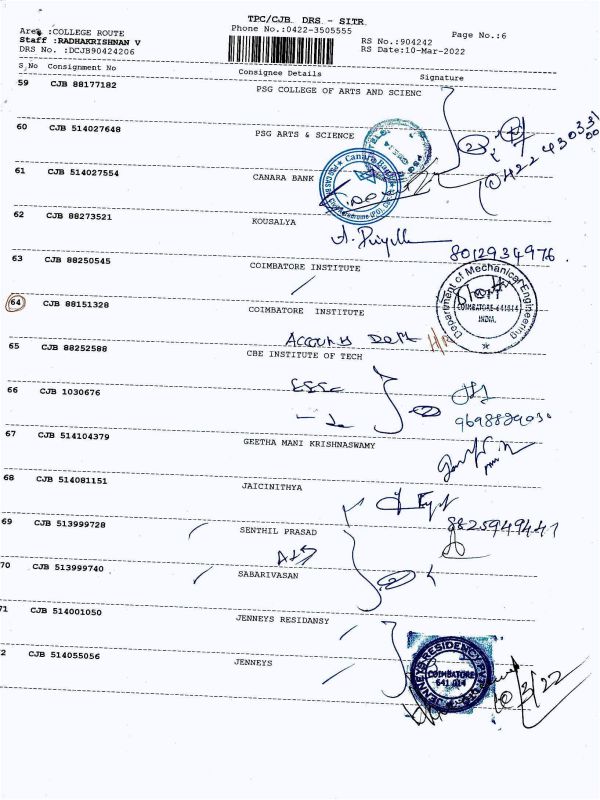 TPC/CJB DRS - SITR
Area :COLLEGE ROUTE
Phone No.:0422-3505555
Page No.:6
Staff :RADHAKRISHNAN V
RS No.:904242
DRS No. :DCJB90424206
RS Date:10-Mar-2022
S_No Consignment No Consignee Details Signature
59 CJB 88177182 PSG COLLEGE OF ARTS AND SCIENC
60 CJB 514027648 PSG ARTS & SCIENCE
61 CJB 514027554 CANARA BANK
Canara Bank
62 CJB 88273521 KOUSALYA
8012934976
63 CJB 88250545 COIMBATORE INSTITUTE
Department of Mechanical Engineering
COIMBATORE-641014
INDIA.
64 CJB 88151328 COIMBATORE INSTITUTE
Accounts Dept
65 CJB 88252588 CBE INSTITUTE OF TECH
66 CJB 1030676
67 CJB 514104379 GEETHA MANI KRISHNASWAMY
68 CJB 514081151 JAICINITHYA
8825949441
69 CJB 513999728 SENTHIL PRASAD
70 CJB 513999740 SABARIVASAN
71 CJB 514001050 JENNEYS RESIDANSY
JENNEYS RESIDENCY PVT LTD
COIMBATORE
641 014
2 CJB 514055056 JENNEYS
10/3/22